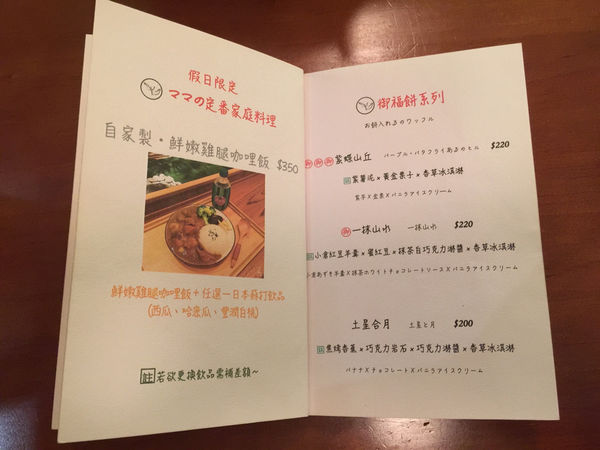 假日限定
ママの定番家庭料理
自家製・鮮嫩雞腿咖哩飯 $350
鮮嫩雞腿咖哩飯+任選一日本蘇打飲品
(西瓜、哈蜜瓜、豐潤白桃)
註若欲更換飲品需補差額~
御福餅系列
お餅入れるのワッフル
御御御紫蝶山丘 パープル・バタフライあるのヒル $220
註紫薯泥×黃金栗子×香草冰淇淋
紫芋×金栗×バニラアイスクリーム
御一抹山水 一抹山水 $220
註小倉紅豆羊羹×蜜紅豆×抹茶白巧克力淋醬×香草冰淇淋
小倉あずき羊羹×抹茶ホワイトチョコレートソース×バニラアイスクリーム
土星合月 土星と月 $200
註焦烤香蕉×巧克力岩石×巧克力淋醬×香草冰淇淋
バナナ×チョコレート×バニラアイスクリーム